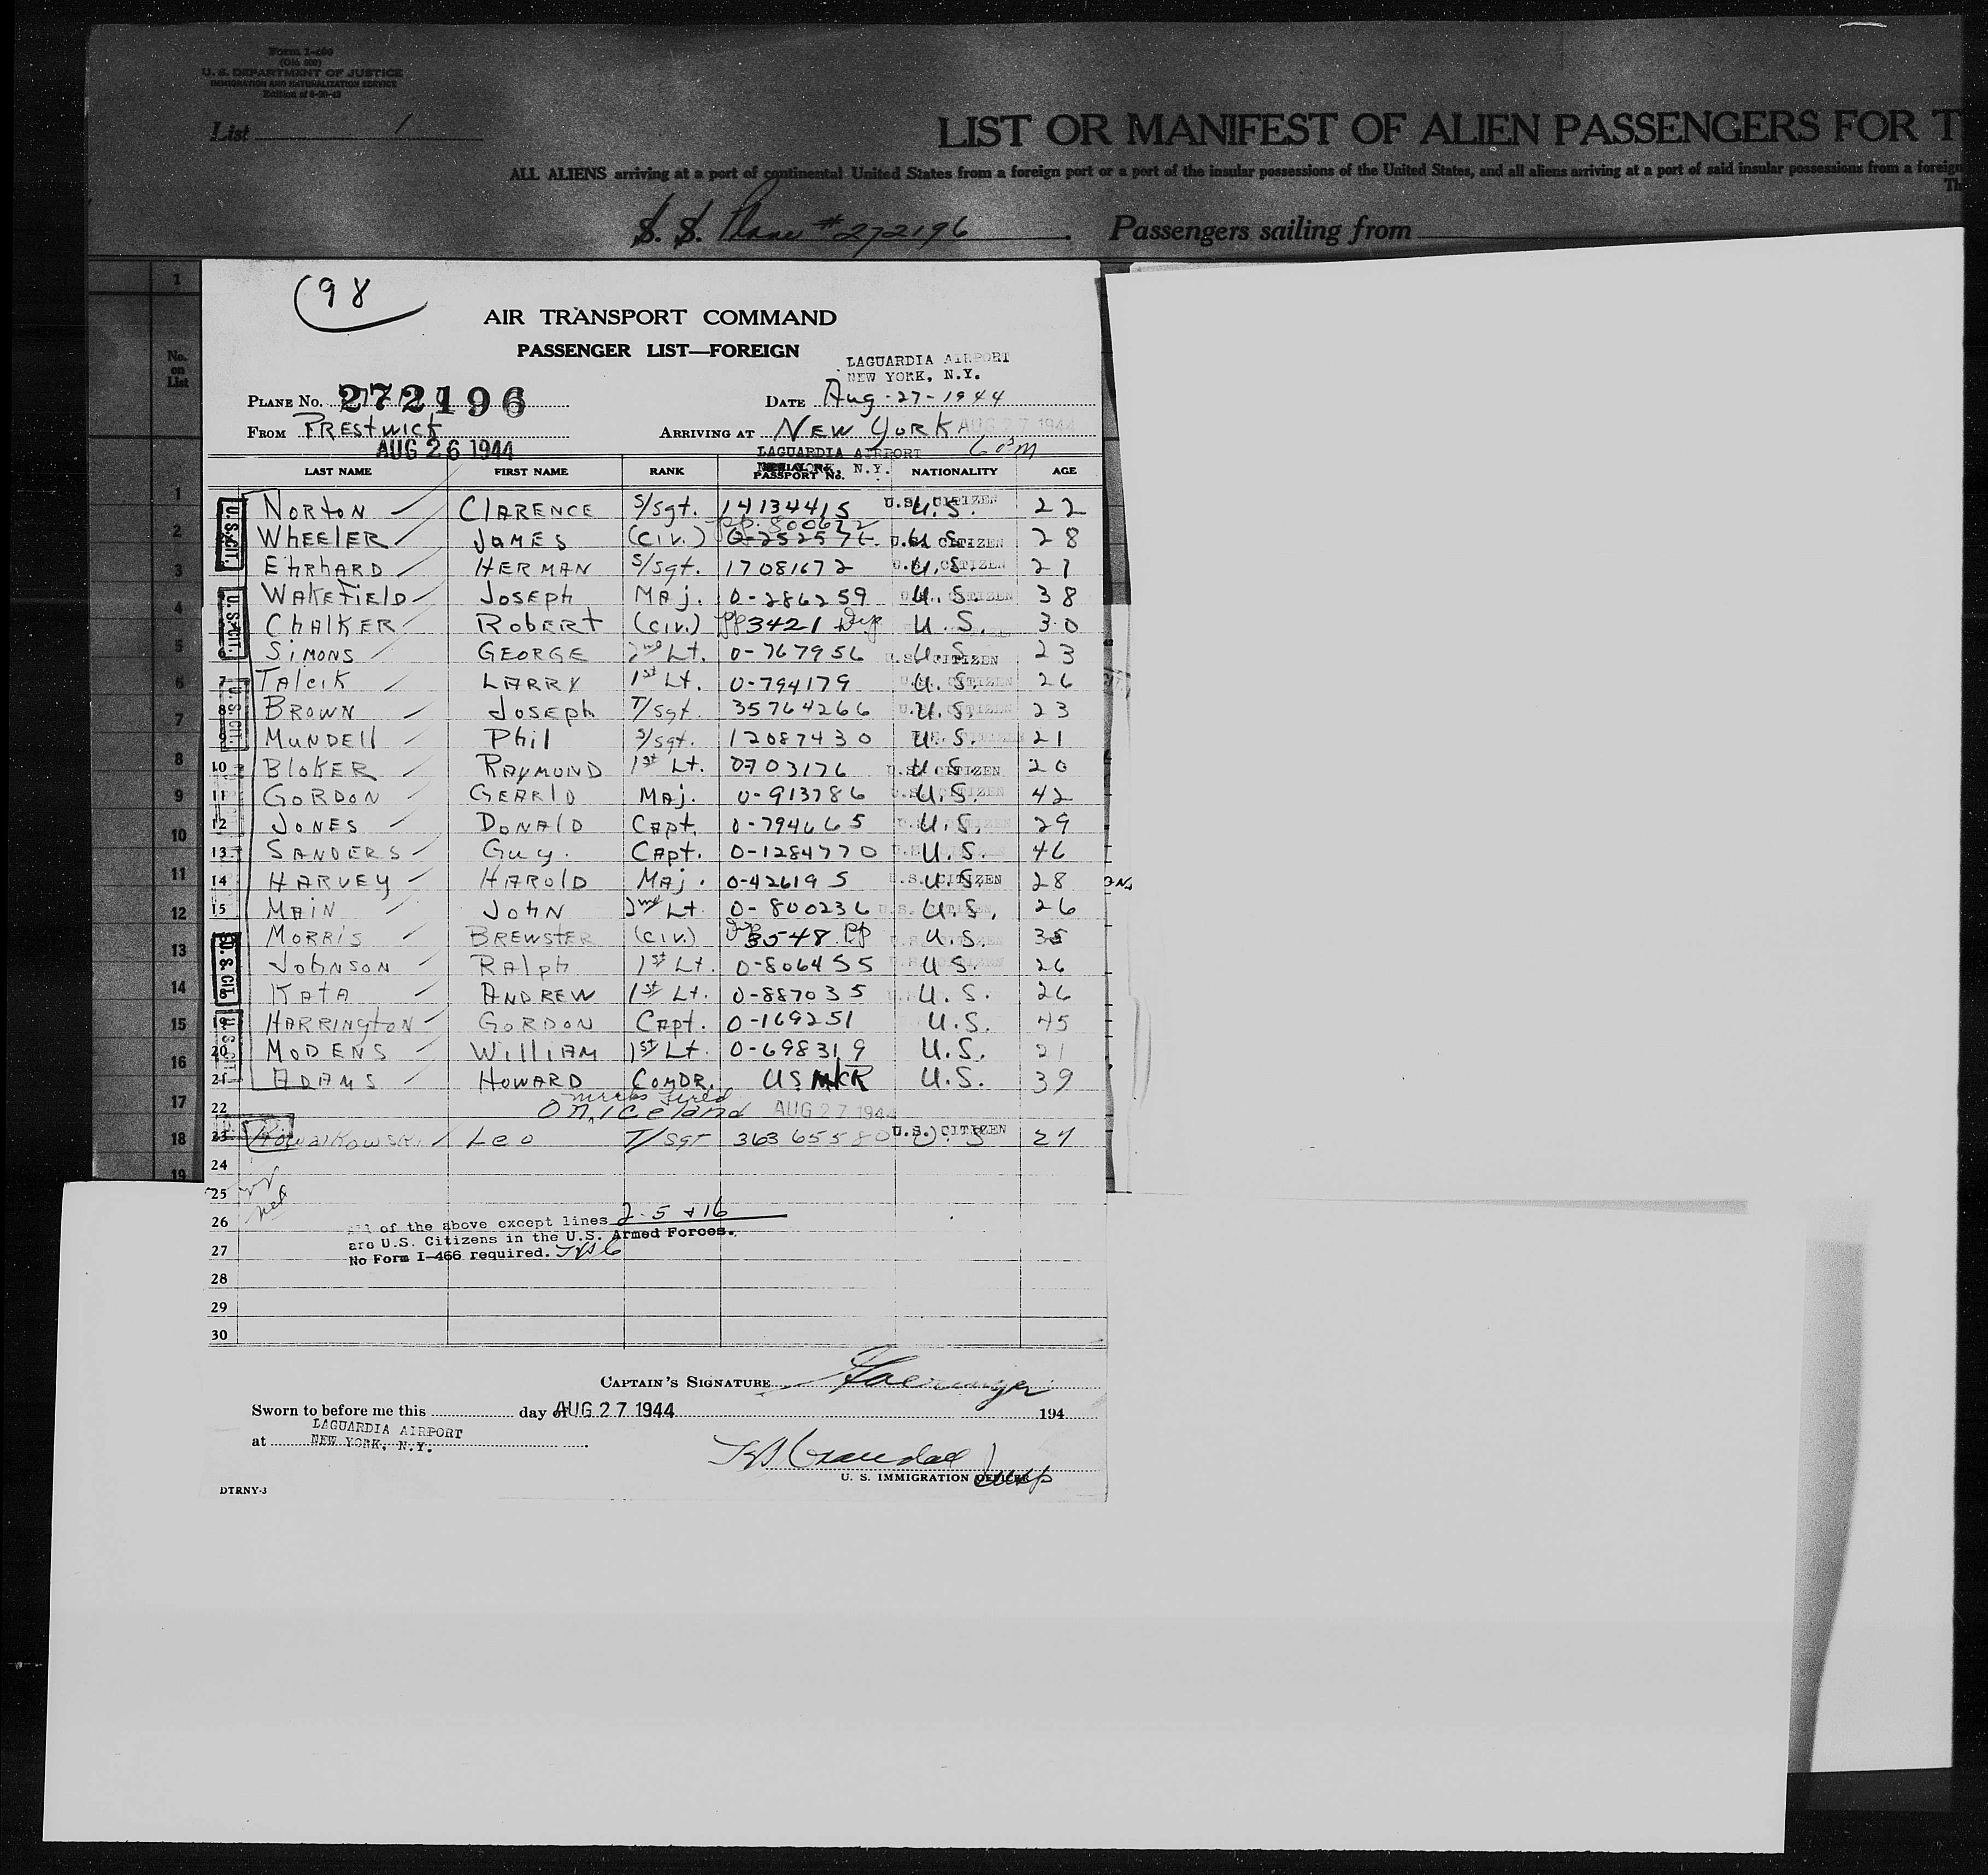 Form I-466
(Old 500)
U. S. DEPARTMENT OF JUSTICE
IMMIGRATION AND NATURALIZATION SERVICE
List 1
LIST OR MANIFEST OF ALIEN PASSENGERS FOR T
ALL ALIENS arriving at a port of continental United States from a foreign port or a port of the insular possessions of the United States, and all aliens arriving at a port of said insular possessions from a foreign
Th
S. S. Plane #272196 Passengers sailing from
No. on List
98
AIR TRANSPORT COMMAND
PASSENGER LIST—FOREIGN
LAGUARDIA AIRPORT
NEW YORK, N.Y.
PLANE No. 272196 DATE Aug-27-1944
FROM PRESTWICK ARRIVING AT NEW YORK AUG 27 1944
AUG 26 1944 LAGUARDIA AIRPORT
NEW YORK, N.Y.
LAST NAME FIRST NAME RANK PASSPORT No. NATIONALITY AGE
1 NORTON CLARENCE S/Sgt. 14134415 U.S. U.S. CITIZEN 22
pp. 800672
2 WHEELER JAMES (Civ.) U.S. U.S. CITIZEN 28
3 EHRHARD HERMAN S/Sgt. 17081672 U.S. 27
4 WAKEFIELD JOSEPH MAJ. O-286259 U.S. CITIZEN 38
5 CHALKER ROBERT (Civ.) pp 3421 Dip U.S. 30
6 SIMONS GEORGE 2nd Lt. O-767956 U.S. U.S. CITIZEN 23
7 TALCIK LARRY 1st Lt. O-794179 U.S. 26
8 BROWN JOSEPH T/Sgt. 35764266 U.S. 23
9 MUNDELL PHIL S/Sgt. 12087430 U.S. 21
10 BLOKER RAYMOND 1st Lt. 0703176 U.S. U.S. CITIZEN 20
11 GORDON GEARLD MAJ. O-913786 U.S. 42
12 JONES DONALD CAPT. O-794665 U.S. 29
13 SANDERS GUY. CAPT. O-1284770 U.S. 46
14 HARVEY HAROLD MAJ. O-426195 U.S. U.S. CITIZEN 28
15 MAIN JOHN 2nd Lt. O-800236 U.S. 26
MORRIS BREWSTER (Civ.) Dip 3548 pp U.S. 35
JOHNSON RALPH 1st Lt. O-806455 U.S. 26
KATA ANDREW 1st Lt. O-887035 U.S. 26
19 HARRINGTON GORDON CAPT. O-169251 U.S. 45
20 MODENS WILLIAM 1st Lt. O-698319 U.S. 21
21 ADAMS HOWARD COMDR. U.S. 39
22 On Iceland AUG 27 1944
23 Leo T/Sgt 36365580 U.S. U.S. CITIZEN 27
24
25
26 All of the above except lines 2-5 + 16
are U.S. Citizens in the U.S. Armed Forces.
27 No Form I-466 required.
28
29
30
CAPTAIN'S SIGNATURE
Sworn to before me this day of AUG 27 1944 194
at LAGUARDIA AIRPORT
NEW YORK, N.Y.
U. S. IMMIGRATION OFFICER
DTRNY-3